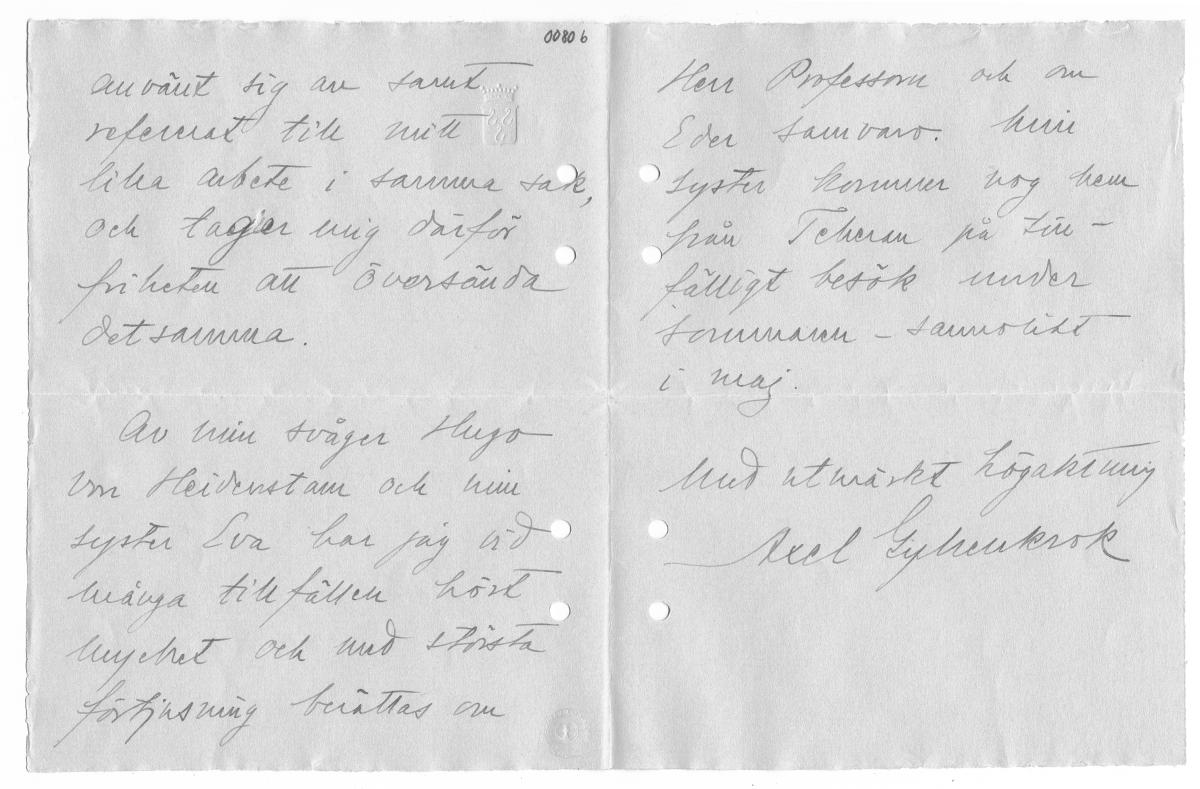 00806
använt sig av samt
refererat till mitt
lilla arbete i samma sak,
och tager mig därför
friheten att översända
detsamma.
Av min svåger Hugo
von Heidenstam och min
syster Eva har jag vid
många tillfällen hört
mycket och med största
förtjusning berättas om
Herr Professorn och om
Eder samvaro. Min
syster kommer nog hem
från Teheran på till-
fälligt besök under
sommaren – sannolikt
i maj.
Med utmärkt högaktning
Axel Gyllenkrok